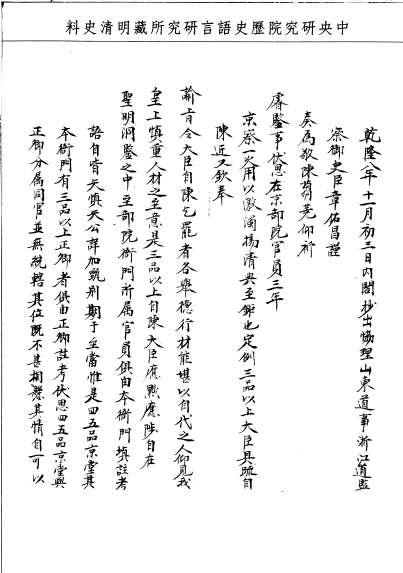 中央研究院歷史語言研究所藏明清史料
乾隆八年十一月初三日內閣抄出協理山東道事浙江道監
察御史臣章佑昌謹
奏為敬陳蒭蕘仰祈
睿鑒事伏思在京部院官員三年
京察一次用以激濁揚清典至鉅也定例三品以上大臣具疏自
陳近又欽奉
諭旨令大臣自陳乞罷者各舉德行材能堪以自代之人仰見我
皇上慎重人材之至意是三品以上自陳大臣應黜應陟自在
聖明洞鑒之中至部院衙門所屬官員俱由本衙門填註考
語自皆矢慎矢公詳加甄別期于至當惟是四五品京堂其
本衙門有三品以上正卿者俱由正卿註考伏思四五品京堂與
正卿分屬同官並無統轄其位既不甚相懸其情自可以